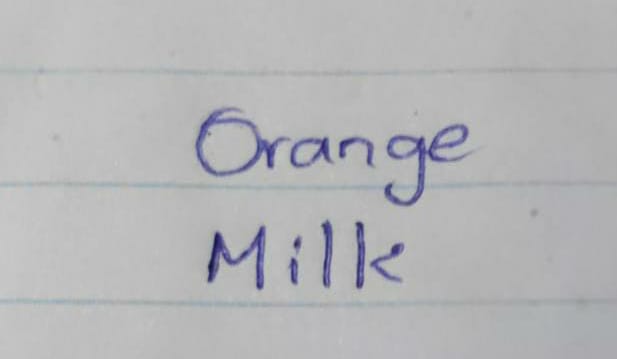 Orange
Milk